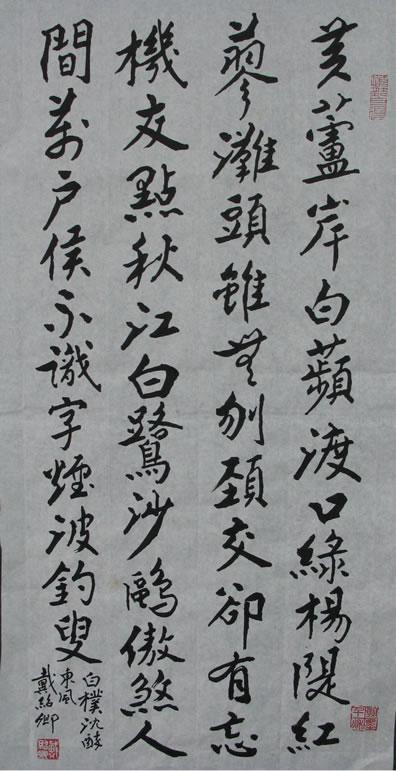 黄蘆岸白蘋渡口綠楊隄紅
蓼灘頭雖無刎頸交卻有忘
機友點秋江白鷺沙鷗傲煞人
間萬戶侯不識字煙波釣叟
白樸沈醉
東風
戴卿